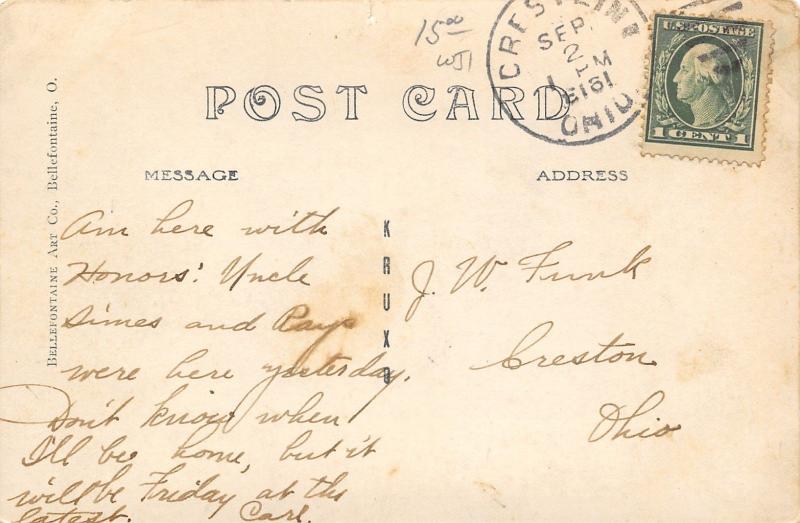 15⁰⁰
WJ
CRESTLINE
SEP.
2
1 PM
1913
OHIO
U.S. POSTAGE
1 CENT 1
POST CARD
MESSAGE
ADDRESS
BELLEFONTAINE ART CO., Bellefontaine, O.
KRUXO
Am here with
Honors'. Uncle
Simes and Rays
were here yesterday.
Don't know when
I'll be home, but it
will be Friday at the
latest. Carl.
J. W. Funk
Creston
Ohio